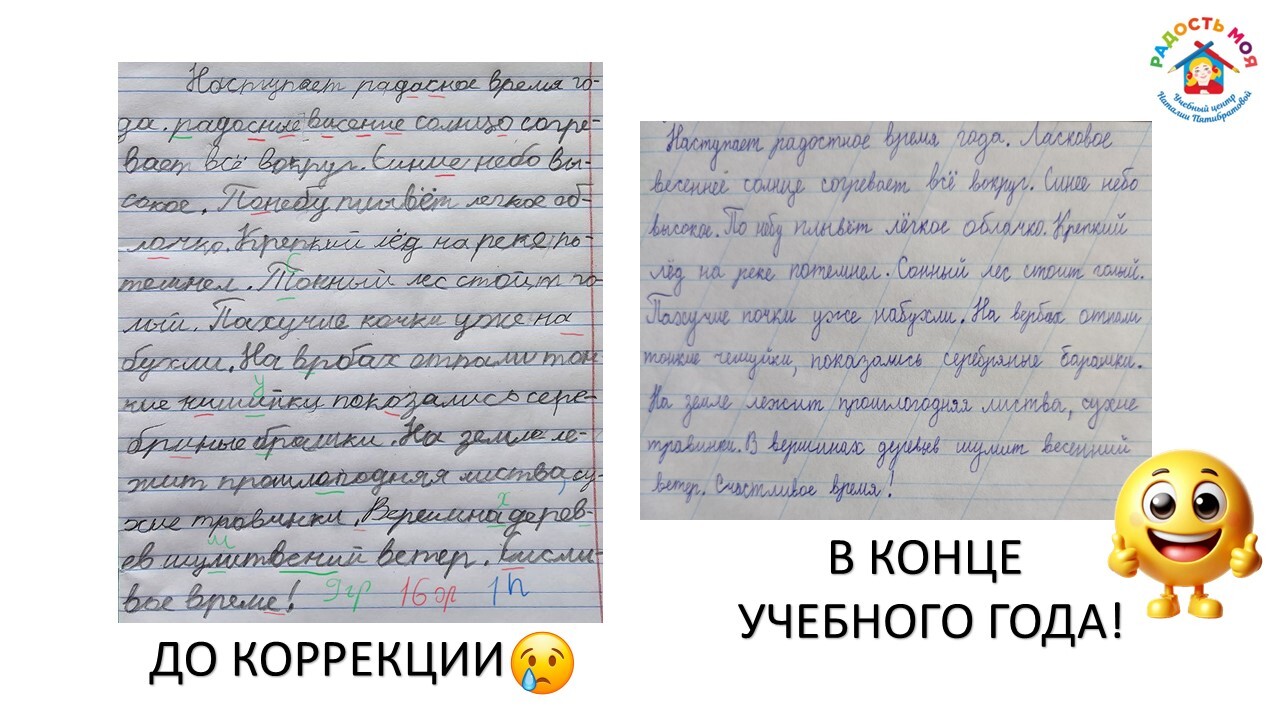 РАДОСТЬ МОЯ
Учебный центр
Наталии Пятибратовой
Наступает радасное время го-
да. радосние васение солнцо согре-
вает всё вокруг. Синие небо вы-
сокое. Понебу плывёт легкое об-
лочко. Крепкий лёд на реке по-
с
темнел. Тонный лес стоит го-
лый. Пахучие кочки уже на
бухли. На врбах отпали тон
у
кие чишийки, покозались сере-
бриные брашки. На земле ле-
жит прошлоподняя листва, су-
х
хие травинки. Вершина дерев-
м
ев шулитвсний ветер. Кисли-
вое време! 9гр 16ор 1п
ДО КОРРЕКЦИИ
Наступает радостное время года. Ласковое
весеннее солнце согревает всё вокруг. Синее небо
высокое. По небу плывёт лёгкое облачко. Крепкий
лёд на реке потемнел. Сонный лес стоит голый.
Пахучие почки уже набухли. На вербах отпали
тонкие чешуйки, показались серебряные барашки.
На земле лежит прошлогодняя листва, сухие
травинки. В вершинах деревьев шумит весенний
ветер. Счастливое время!
В КОНЦЕ
УЧЕБНОГО ГОДА!